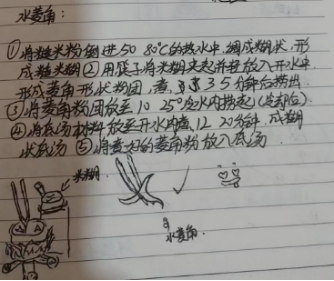 水菱角：
①将糯米粉倒进50 80℃的热水中，调成糊状，形
成糯米糊②用筷子将米糊夹起并轻放入开水中
形成菱角形状粉团，煮 3 5分钟后捞出
③将菱角粉团放至10 25℃冷水内捞起(定型)。
④将底汤材料放至开水内煮12 20分钟，成糊
状底汤 ⑤将煮好的菱角粉放入底汤
米糊
水菱角.